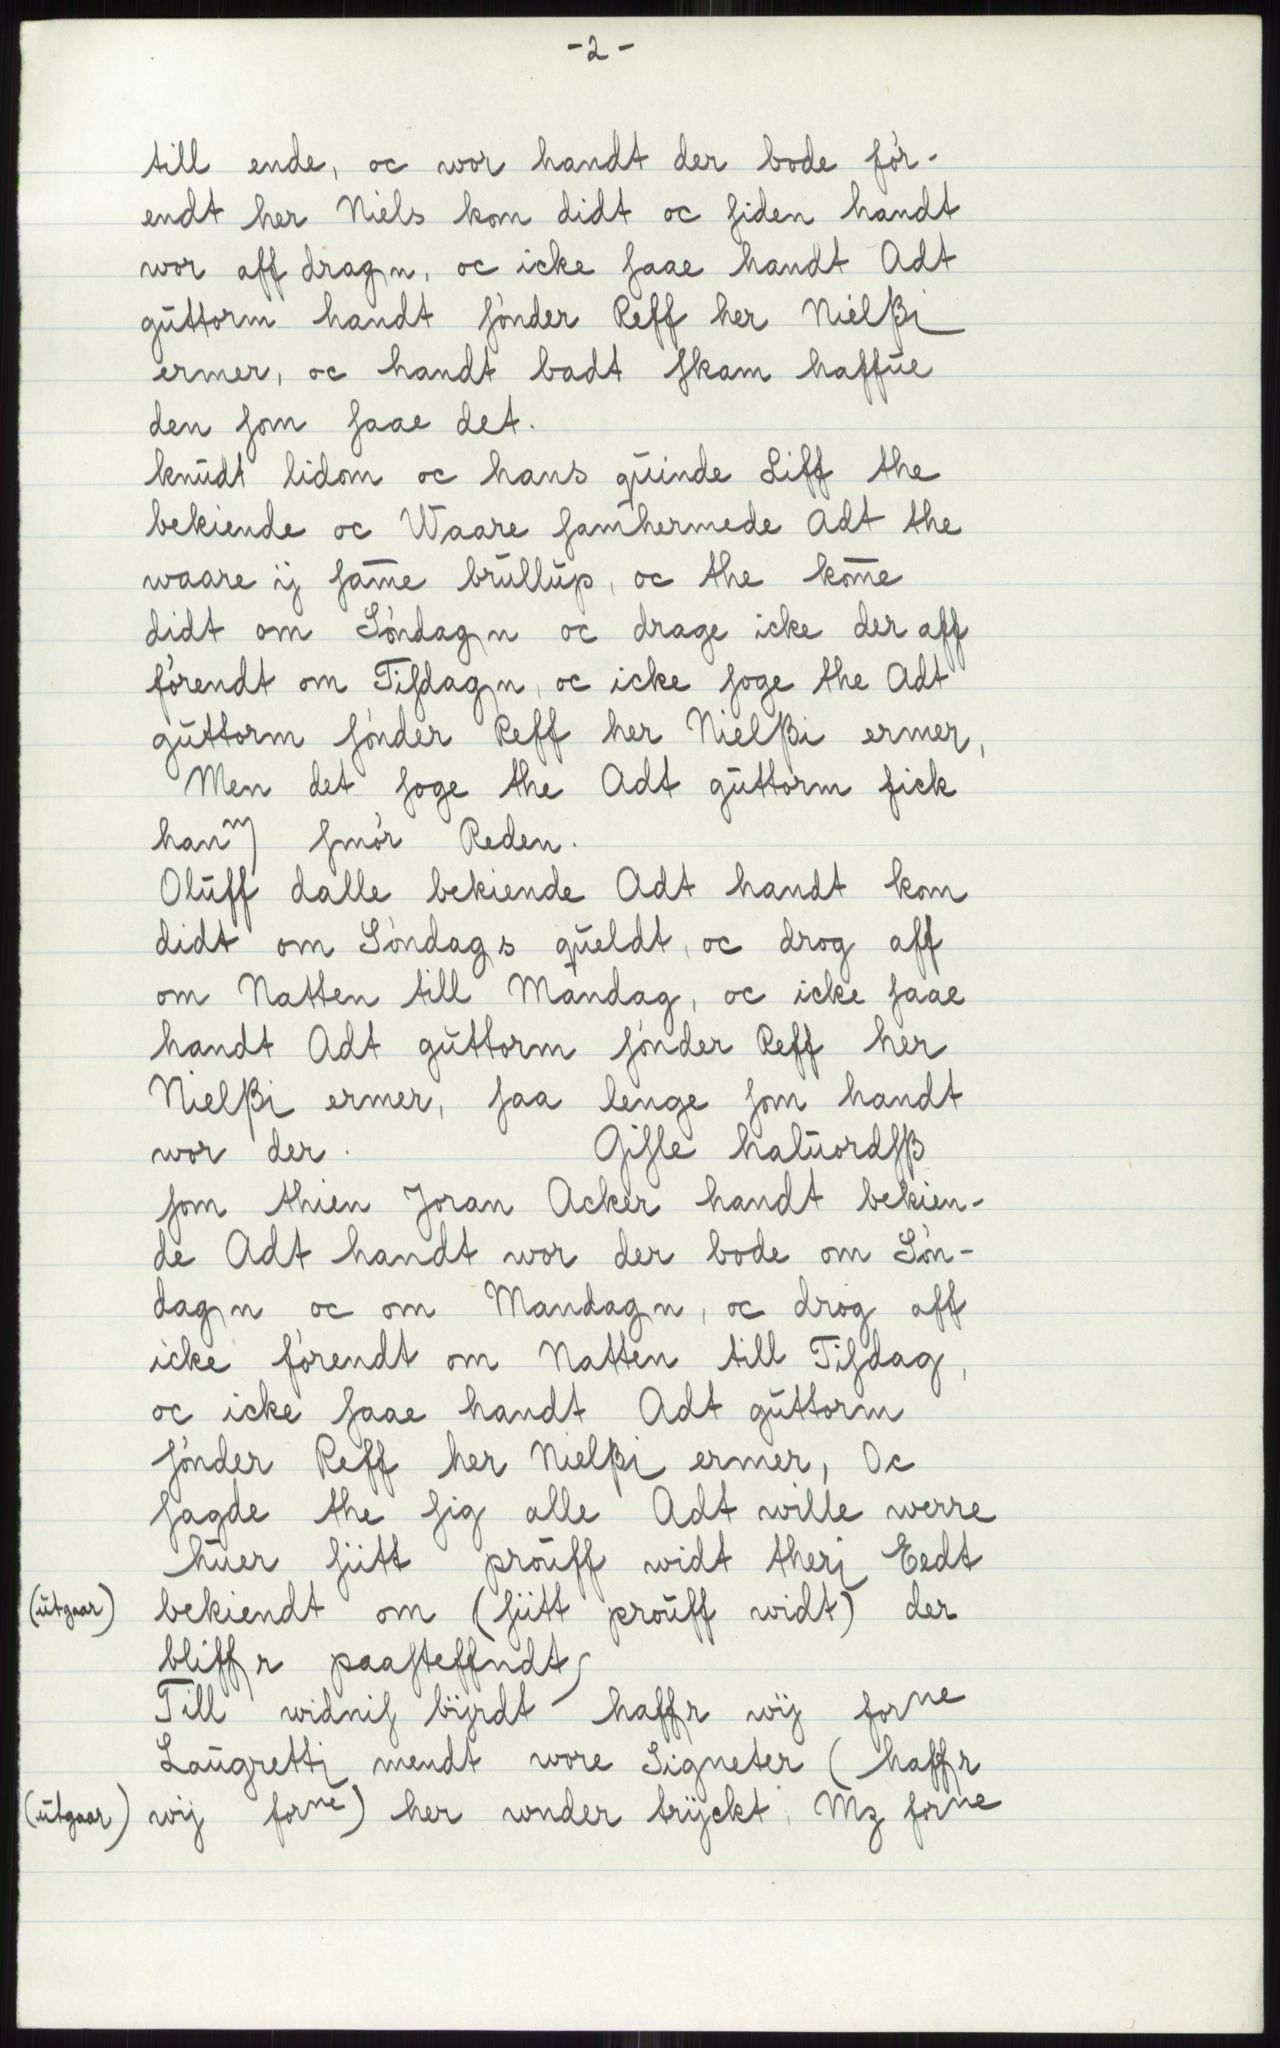 -2-
till ende, oc wor handt der bode fór-
endt her Niels kom didt oc ſiden handt
wor aff dragn, oc icke ſaae handt Adt
gūttorm handt ſónder Reff her Nielßi
ermer, oc handt badt ſkam haffūe
den ſom ſaae det.
knūdt lidom oc hans qūinde Siff the
bekiende oc Waare ſamhermede Adt the
waare ij ſam̄e brūllūp, oc the kom̄e
didt om Sóndagn oc drage icke der aff
fórendt om Tiſdagn, oc icke ſoge the Adt
gūttorm ſónder Reff her Nielßi ermer,
Men det ſoge the Adt gūttorm fick
hanm ſmór Reden.
Olūff dalle bekiende Adt handt kom
didt om Sóndags qūeldt, oc drog aff
om Natten till Mandag, oc icke ſaae
handt Adt gūttorm ſónder Reff her
Nielßi ermer, ſaa lenge ſom handt
wor der. Giſle halūordſß
ſom thien Joran Acker handt bekien-
de Adt handt wor der bode om Són-
dagn oc om Mandagn, oc drog aff
icke fórendt om Natten till Tiſdag,
oc icke ſaae handt Adt gūttorm
ſónder Reff her Nielßi ermer, Oc
ſagde the ſig alle Adt wille werre
hūer ſiitt proūff widt theri Eedt
(ūtgaar) bekiendt om (ſiitt proūff widt) der
bliffr paaſteffndt
Till widniſ bÿrdt haffr wij forne
Laūgretti mendt wore Signeter (haffr
(ūtgaar) wij forne) her wnder trÿckt, Mz forne